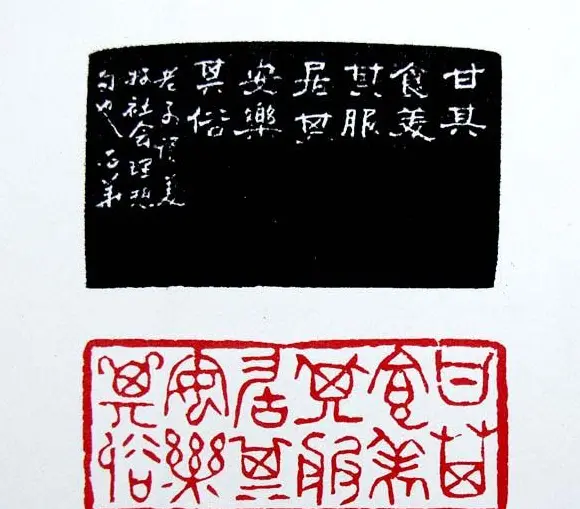 甘其
食美
其服
居其
安樂
其俗
老子美
好社会理想
句也
甘其
食美
其服
居其
安樂
其俗